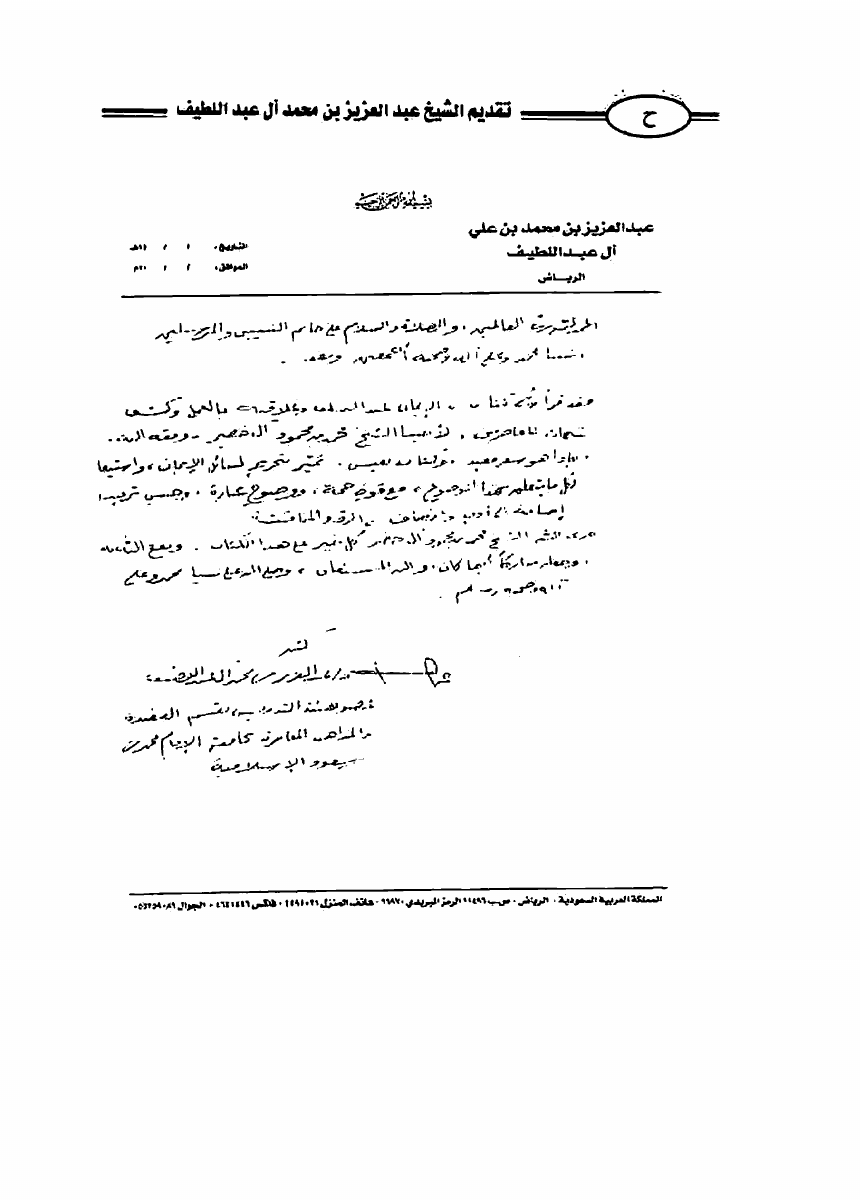 تقديم الشيخ عبد العزيز بن محمد آل عبد اللطيف
ح
بسم الله الرحمن الرحيم
عبدالعزيز بن محمد بن علي
آل عبداللطيف
الرياض
التاريخ: / / ١٤هـ
الموافق: / / ٢٠م
الحمد لله رب العالمين، والصلاة والسلام على خاتم النبيين والمرسلين
نبينا محمد وعلى آله وصحبه أجمعين، وبعد.
فقد قرأت كتاب الإيمان عند السلف وعلاقته بالعمل وكشف
شبهات المعاصرين، لأخينا الشيخ محمد بن محمود آل خضير - وفقه الله.
هو سفر مفيد نفيس. تميّز بتحرير لمسائل الإيمان، واستيعاب
لكل ما يتعلق بهذا الموضوع، مع قوة حجة، ووضوح عبارة، وحسن ترتيب
إضافة إلى أدب وإنصاف في الرد والمناقشة.
الله الشيخ محمد بن محمود آل خضير كل خير على هذا الكتاب. ونفع
وجعله مباركاً أينما كان، والله المستعان، وصلى الله على نبينا محمد وعلى
آله وصحبه وسلم.
كتبه
عبد العزيز بن محمد آل عبد اللطيف
عضو هيئة التدريس بقسم العقيدة
والمذاهب المعاصرة بجامعة الإمام محمد بن
سعود الإسلامية
المملكة العربية السعودية - الرياض - ص.ب الرمز البريدي - هاتف المنزل - فاكس - الجوال